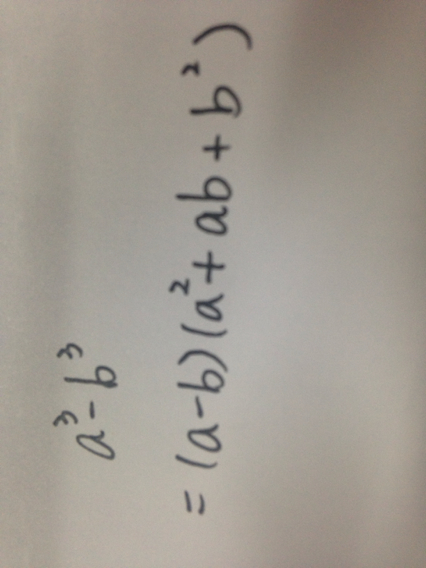 a³-b³
=(a-b)(a²+ab+b²)